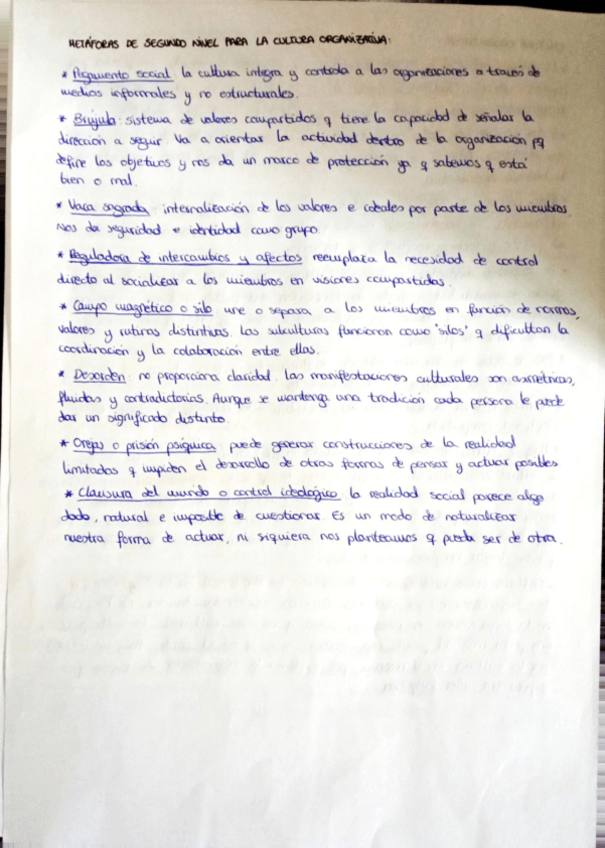 METÁFORAS DE SEGUNDO NIVEL PARA LA CULTURA ORGANIZATIVA:
* Pegamento social: la cultura integra y controla a las organizaciones a través de
medios informales y no estructurales.
* Brújula: sistema de valores compartidos q tiene la capacidad de señalar la
dirección a seguir. Va a orientar la actividad dentro de la organización pq
define los objetivos y nos da un marco de protección ya q sabemos q está
bien o mal.
* Vaca sagrada: internalización de los valores e ideales por parte de los miembros.
Nos da seguridad e identidad como grupo.
* Reguladora de intercambios y afectos: reemplaza la necesidad de control
directo al socializar a los miembros en visiones compartidas.
* Campo magnético o silo: une o separa a los miembros en función de normas,
valores y rutinas distintivas. Las subculturas funcionan como 'silos' q dificultan la
coordinación y la colaboración entre ellas.
* Desorden: no proporciona claridad. Las manifestaciones culturales son asimétricas,
fluidas y contradictorias. Aunque se mantenga una tradición cada persona le puede
dar un significado distinto.
* Orejas o prisión psíquica: puede generar construcciones de la realidad
limitadas q impiden el desarrollo de otras formas de pensar y actuar posibles
* Clausura del mundo o control ideológico: la realidad social parece algo
dado, natural e imposible de cuestionar. Es un modo de naturalizar
nuestra forma de actuar, ni siquiera nos planteamos q pueda ser de otra.